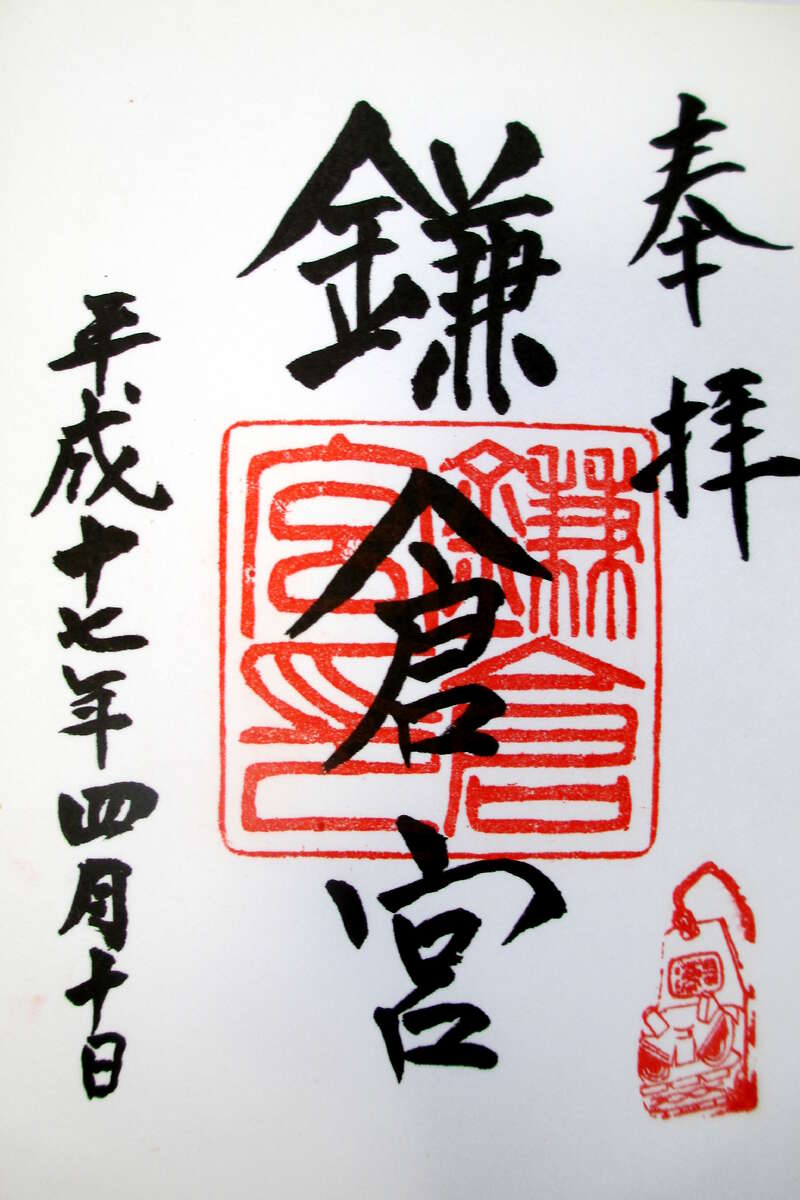 奉拝
鎌倉宮
鎌倉宮印
平成十七年四月十日